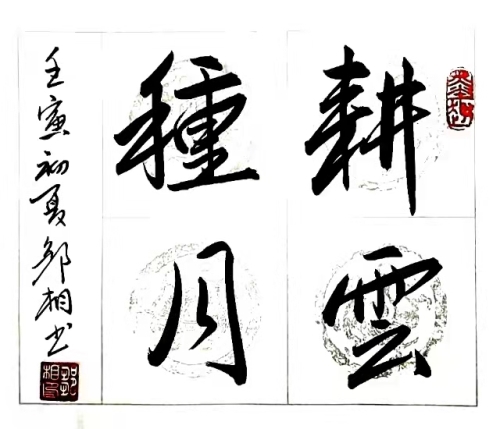 耕雲
種月
壬寅初夏相书